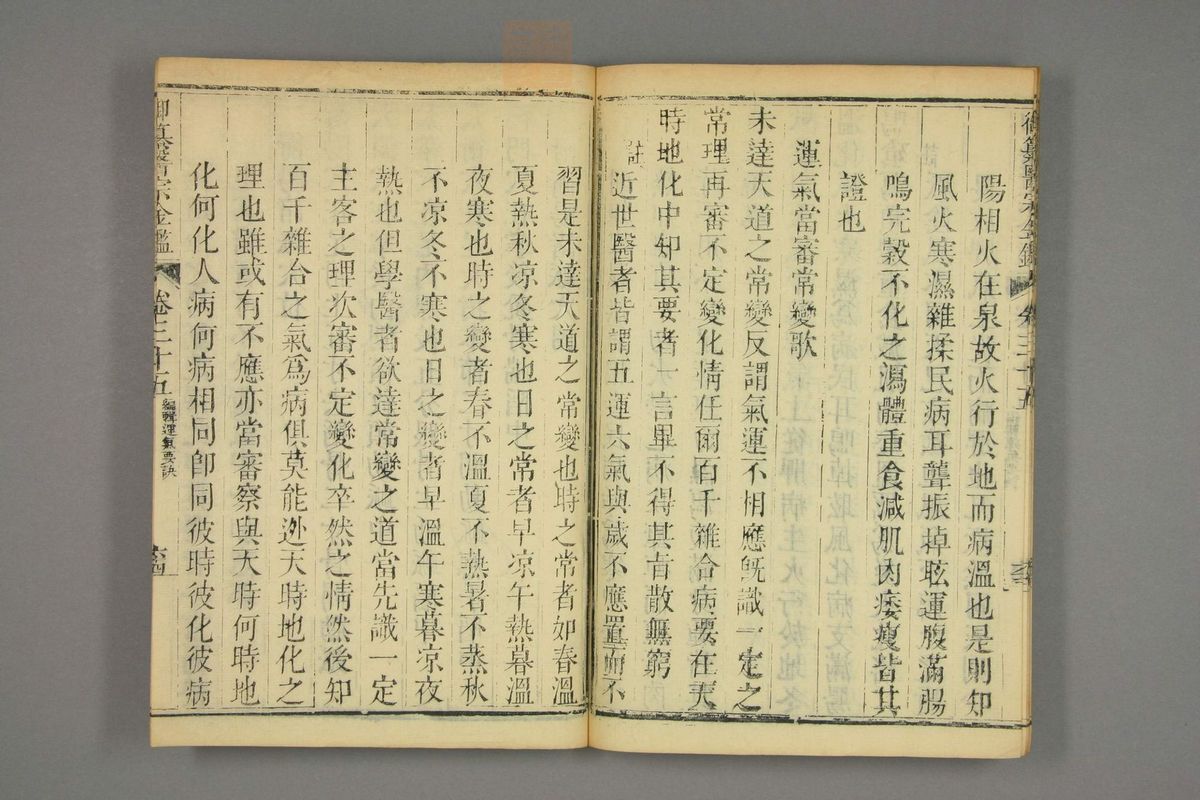 御纂醫宗金鑑
卷三十五
陽相火在泉故火行於地而病溫也是則知
風火寒濕雜揉民病耳聾振掉眩運腹滿腸
鳴完穀不化之瀉體重食減肌肉痿瘦皆其
證也
運氣當審常變歌
未達天道之常變反謂氣運不相應旣識一定之
常理再審不定變化情任爾百千雜合病要在天
時地化中知其要者一言畢不得其旨散無窮
註近世醫者皆謂五運六氣與歲不應置而不
習是未達天道之常變也時之常者如春溫
夏熱秋凉冬寒也日之常者早凉午熱暮溫
夜寒也時之變者春不溫夏不熱暑不蒸秋
不凉冬不寒也日之變者早溫午寒暮凉夜
熱也但學醫者欲達常變之道當先識一定
主客之理次審不定變化卒然之情然後知
百千雜合之氣爲病俱莫能逃天時地化之
理也雖或有不應亦當審察與天時何時地
化何化人病何病相同卽同彼時彼化彼病
御纂醫宗金鑑
卷三十五
編輯運氣要訣